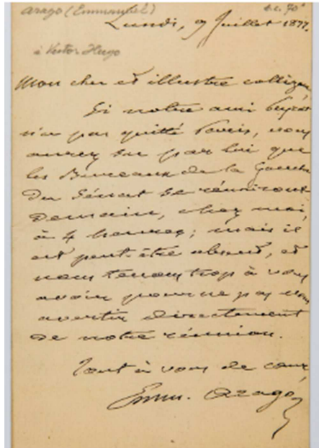 Arago (Emmanuel)
à Victor Hugo
Lundi, 9 Juillet 1877.
Mon cher et illustre collègue,
Si notre ami
n'a pas quitté Paris, vous
aurez su par lui que
les Bureaux de la Gauche
du Sénat se réuniront
Demain, chez moi,
à 4 heures; mais il
est peut-être absent, et
nous tenons trop à vous
avoir pour ne pas vous
avertir directement
de notre réunion.
Tout à vous de cœur,
Emm. Arago